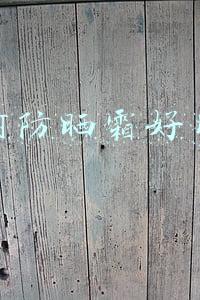 防晒霜好